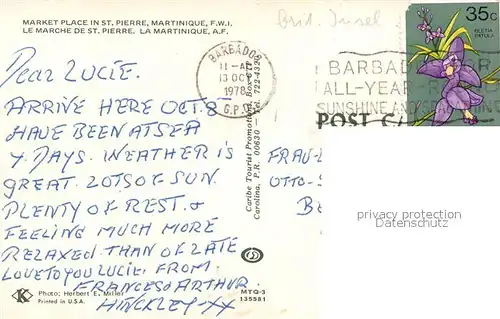 MARKET PLACE IN ST. PIERRE, MARTINIQUE, F.W.I.
LE MARCHE DE ST. PIERRE. LA MARTINIQUE, A.F.
Brit. Insel
35c
BLETIA PATULA
BARBADOS
11-AM
13 OC
1978
G.P.O.
BARBAD
ALL-YEAR-R
SUNSHINE AND
POST CA
Dear Lucie.
ARRIVE HERE OCT. 8
HAVE BEEN AT SEA
4 DAYS. WEATHER IS
GREAT. LOTS OF SUN.
PLENTY OF REST. &
FEELING MUCH MORE
RELAXED. THAN OF LATE
LOVE TO YOU LUCIE. FROM
FRANCES & ARTHUR.
HINCKLEY-XX
Caribe Tourist Promotions, Box
Carolina, P.R. 00630 Tel. 722-432
FRAU
OTTO-S
BE
privacy protection
Datenschutz
K
Photo: Herbert E. Miller
Printed in U.S.A.
MTQ-3
135581